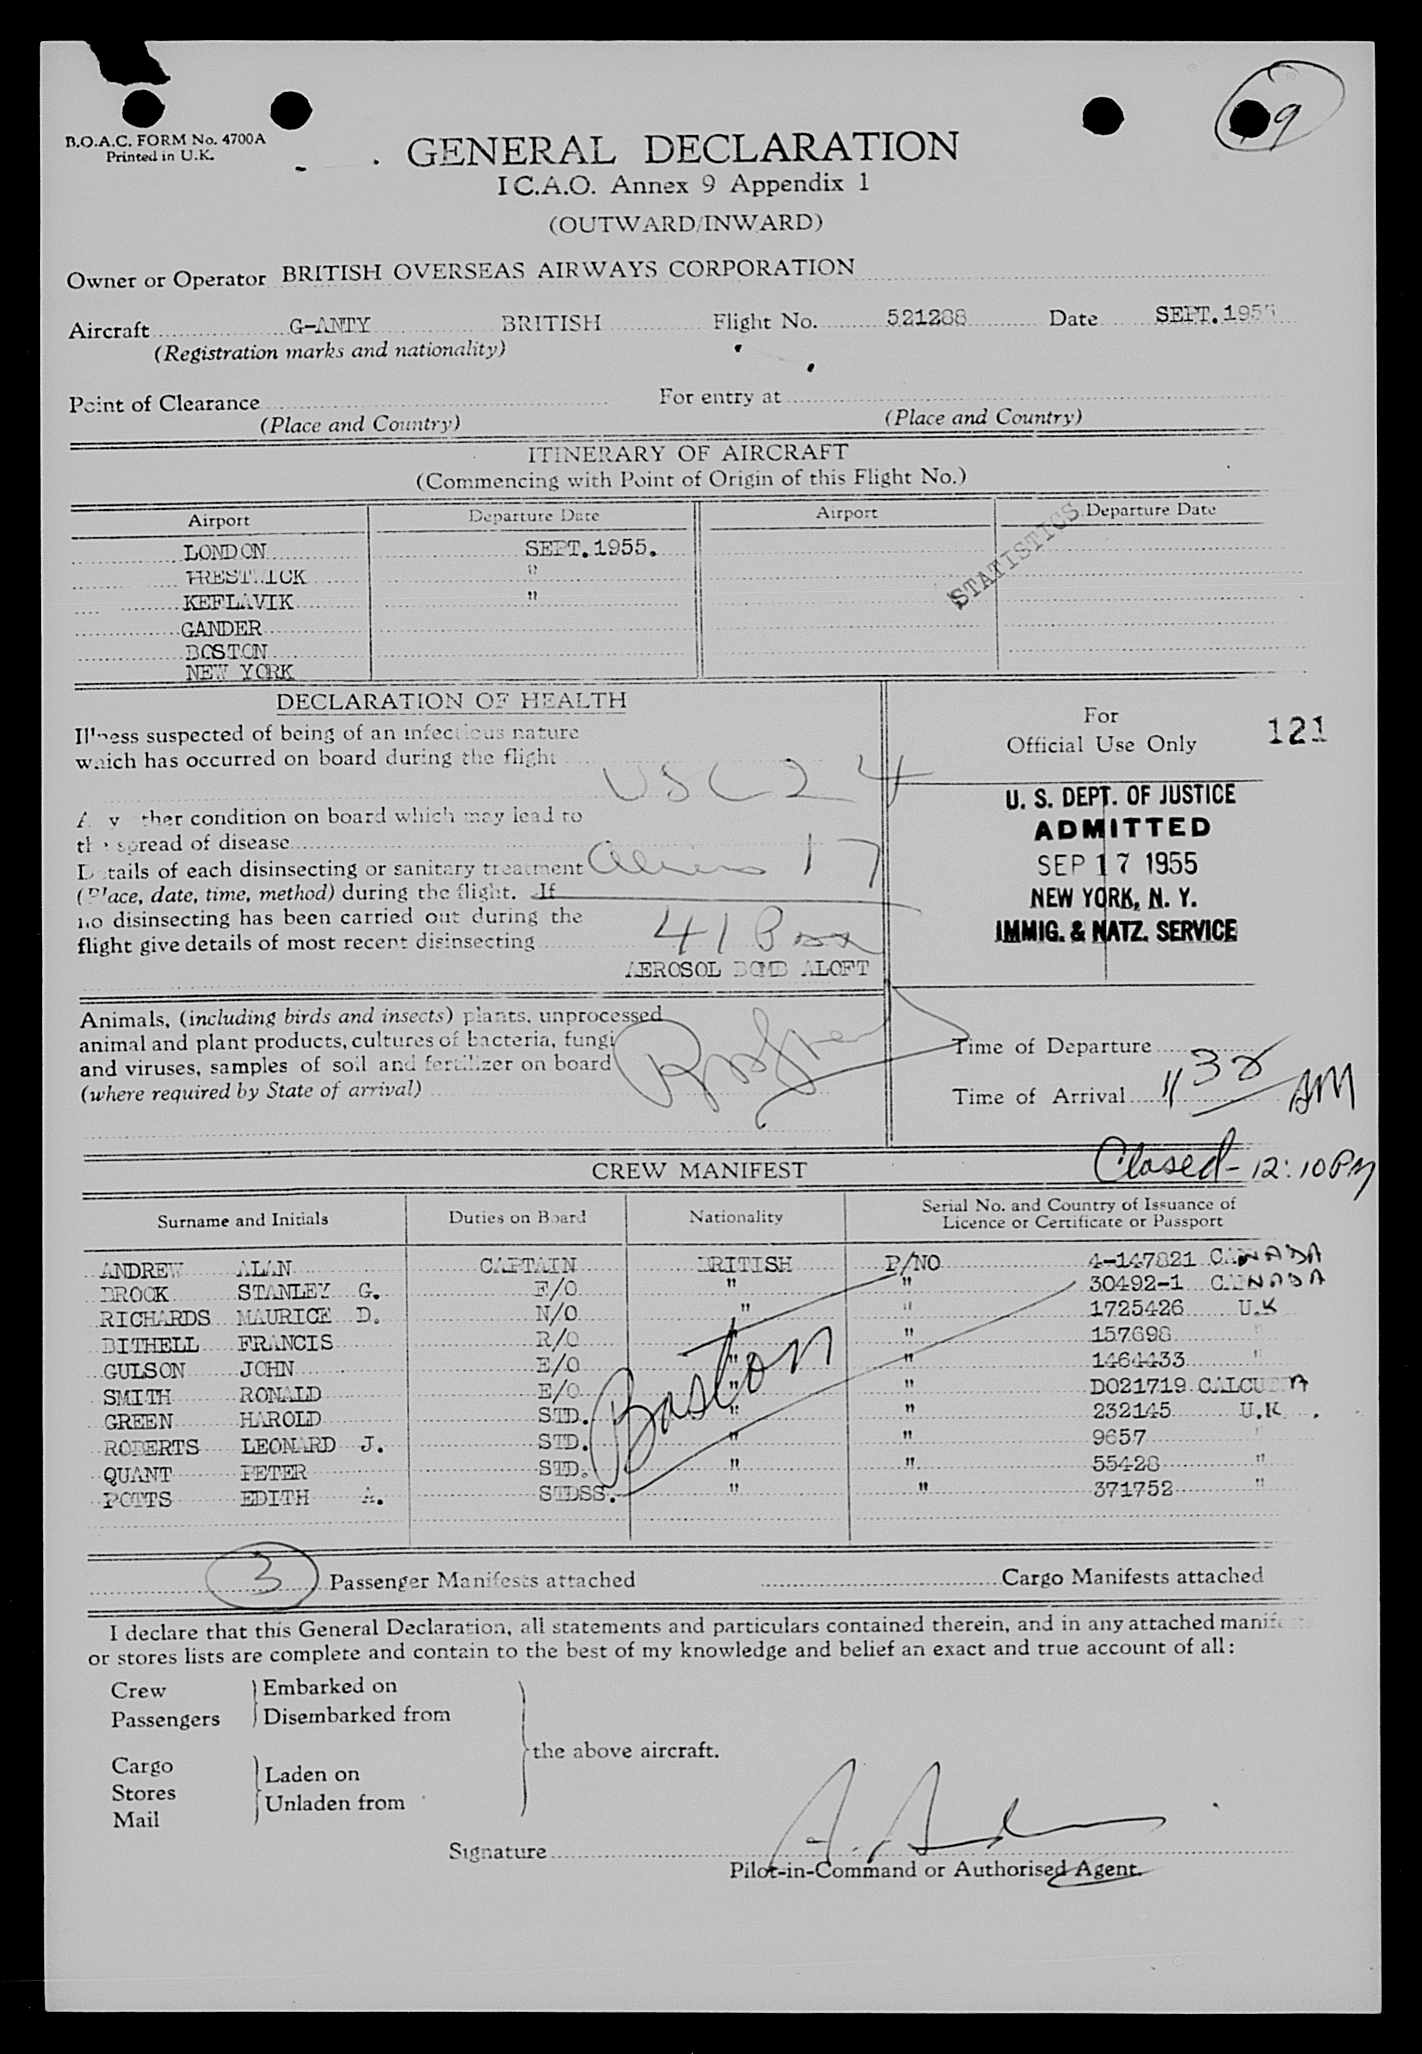 9
B.O.A.C. FORM No. 4700A
Printed in U.K.
GENERAL DECLARATION
I C.A.O. Annex 9 Appendix 1
(OUTWARD/INWARD)
Owner or Operator BRITISH OVERSEAS AIRWAYS CORPORATION
Aircraft G-ANTY BRITISH Flight No. 521288 Date SEPT.1955
(Registration marks and nationality)
Point of Clearance For entry at
(Place and Country) (Place and Country)
ITINERARY OF AIRCRAFT
(Commencing with Point of Origin of this Flight No.)
Airport Departure Date Airport Departure Date
STATISTICS
LONDON SEPT.1955.
PRESTWICK "
KEFLAVIK "
GANDER
BOSTON
NEW YORK
DECLARATION OF HEALTH
Illness suspected of being of an infectious nature
which has occurred on board during the flight
USC 24
Any other condition on board which may lead to
the spread of disease
Aliens 17
Details of each disinsecting or sanitary treatment
(Place, date, time, method) during the flight. If
no disinsecting has been carried out during the
flight give details of most recent disinsecting
41
AEROSOL BOMB ALOFT
For
Official Use Only 121
U. S. DEPT. OF JUSTICE
ADMITTED
SEP 17 1955
NEW YORK, N. Y.
IMMIG. & NATZ. SERVICE
Animals, (including birds and insects) plants, unprocessed
animal and plant products, cultures of bacteria, fungi
and viruses, samples of soil and fertilizer on board
(where required by State of arrival)
Time of Departure
Time of Arrival 11 38 AM
Closed - 12:10 PM
CREW MANIFEST
Surname and Initials Duties on Board Nationality Serial No. and Country of Issuance of
Licence or Certificate or Passport
ANDREW ALAN CAPTAIN BRITISH P/NO 4-147821 CANADA
BROCK STANLEY G. F/O " " 30492-1 CANADA
RICHARDS MAURICE D. N/O " " 1725426 U.K
BITHELL FRANCIS R/O " " 157698 "
GULSON JOHN E/O " " 1464433 "
SMITH RONALD E/O " " D021719 CALCUTTA
GREEN HAROLD STD. " " 232145 U.K.
ROBERTS LEONARD J. STD. " " 9657 "
QUANT PETER STD. " " 55428 "
POTTS EDITH A. STDSS. " " 371752 "
Boston
3 Passenger Manifests attached Cargo Manifests attached
I declare that this General Declaration, all statements and particulars contained therein, and in any attached manifests
or stores lists are complete and contain to the best of my knowledge and belief an exact and true account of all:
Crew Embarked on
Passengers Disembarked from
the above aircraft.
Cargo
Stores Laden on
Mail Unladen from
Signature
Pilot-in-Command or Authorised Agent.